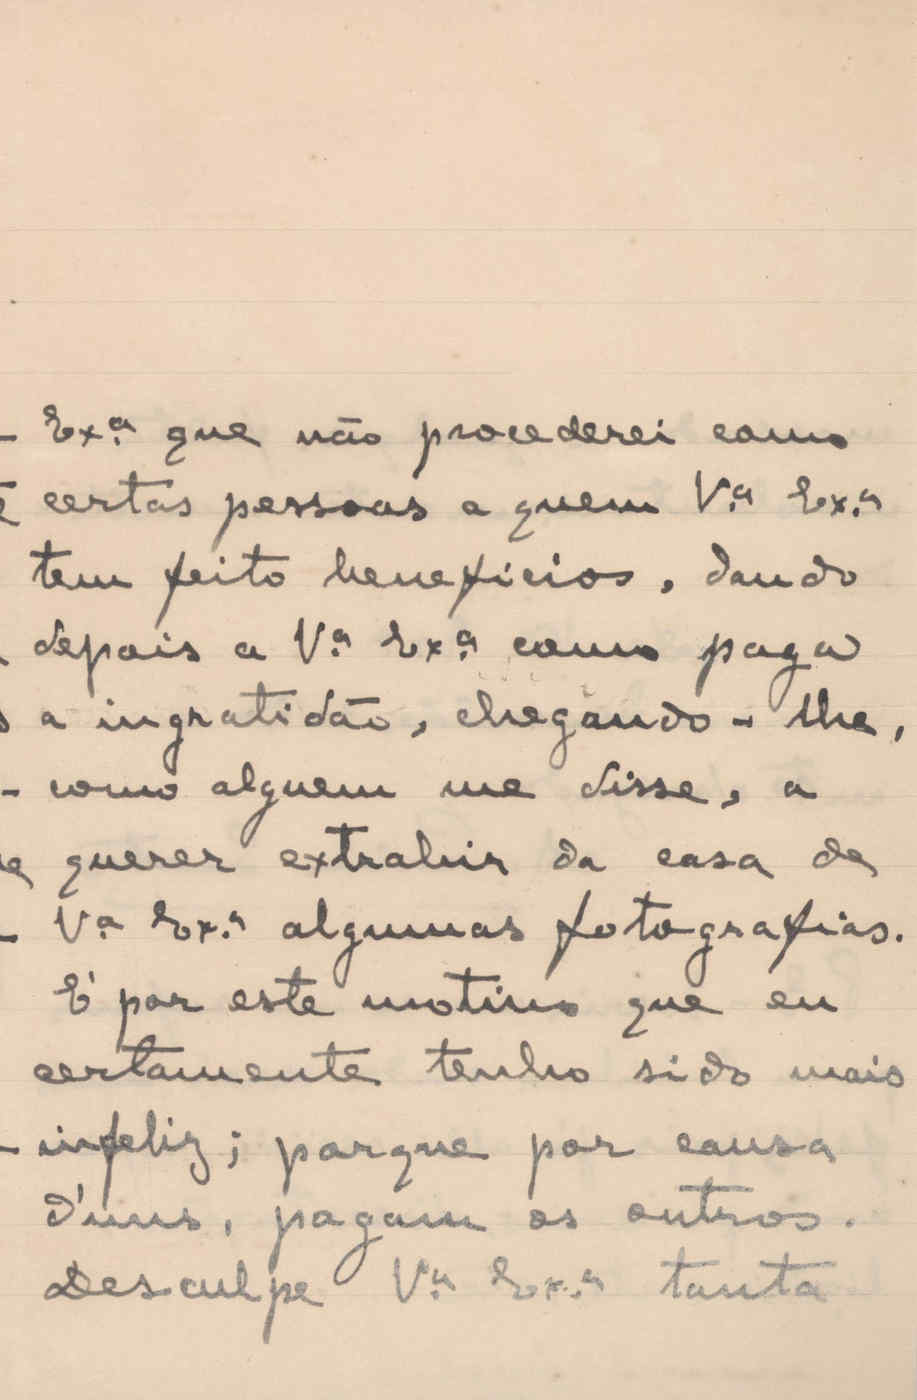 Ex.ª que não procederei como
certas pessoas a quem V.ª Ex.ª
tem feito beneficios, dando
depois a V.ª Ex.ª como paga
a ingratidão, chegando-lhe,
como alguem me disse, a
querer extrahir da casa de
V.ª Ex.ª algumas fotografias.
E' por este motivo que eu
certamente tenho sido mais
infeliz; porque por causa
d'uns, pagam os outros.
Desculpe V.ª Ex.ª tanta